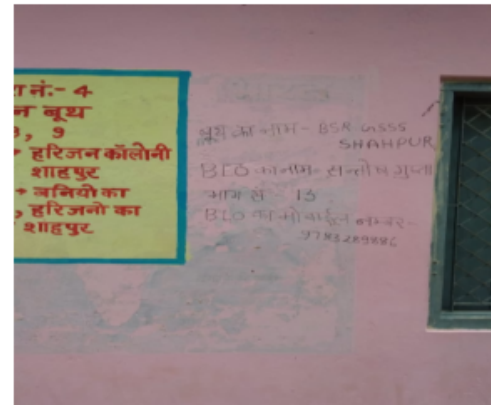 नं:- 4
न बूथ
3, 9
हरिजन कॉलोनी
शाहपुर
बनियो का
, हरिजनो का
शाहपुर
बूथ का नाम - BSR GSSS
SHAHPUR
BLO का नाम - सन्तोष गुप्ता
भाग सं - 13
BLO का मोबाईल नम्बर -
9783289886